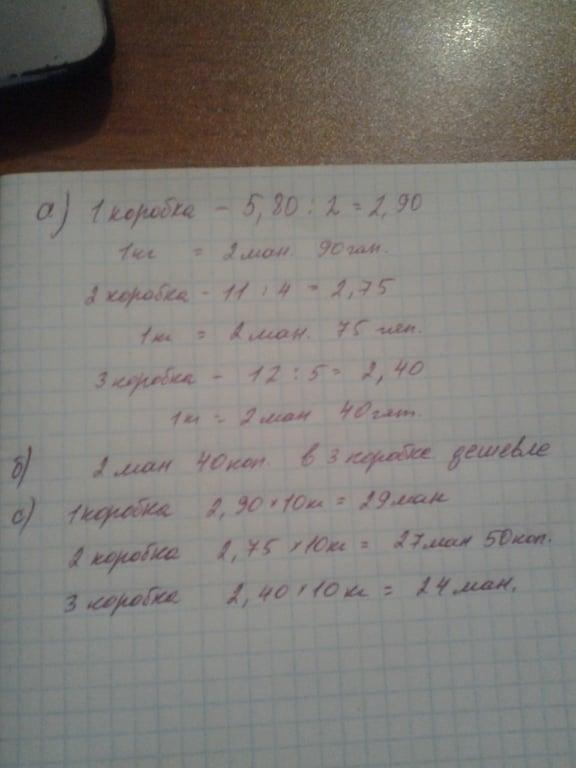 а) 1 коробка - 5,80 : 2 = 2,90
1кг = 2 ман. 90 гяп.
2 коробка - 11 : 4 = 2,75
1кг = 2 ман. 75 гяп.
3 коробка - 12 : 5 = 2,40
1кг = 2 ман 40 гяп.
б) 2 ман 40 коп. в 3 коробке дешевле
с) 1 коробка 2,90 × 10кг = 29 ман
2 коробка 2,75 × 10кг = 27 ман 50 коп.
3 коробка 2,40 × 10 кг = 24 ман.